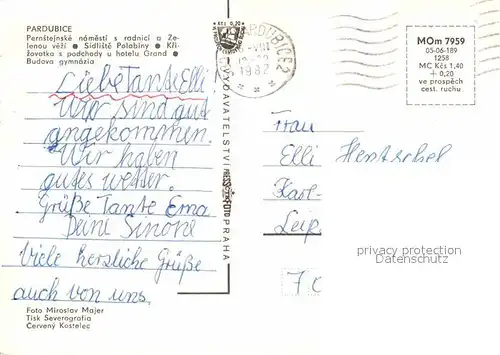 PARDUBICE
Pernštejnské náměstí s radnicí a Ze-
lenou věží ● Sídliště Polabiny ● Kři-
žovatka s podchody u hotelu Grand ●
Budova gymnázia
Kčs 0,20
PARDUBICE 2
VIII
1982
MOm 7959
05-06-189
1258
MC Kčs 1,40
+ 0,20
ve prospěch
cest. ruchu
Liebe Tante Elli!
Wir sind gut
angekommen.
Wir haben
gutes wetter.
Grüße Tante Ema
Deine Simone
Viele herzliche Grüße
auch von uns.
VYDAVATELSTVÍ PRESSFOTO PRAHA
Frau
Elli Hentschel
Karl-
Leip
70
privacy protection
Datenschutz
Foto Miroslav Majer
Tisk Severografia
Červený Kostelec